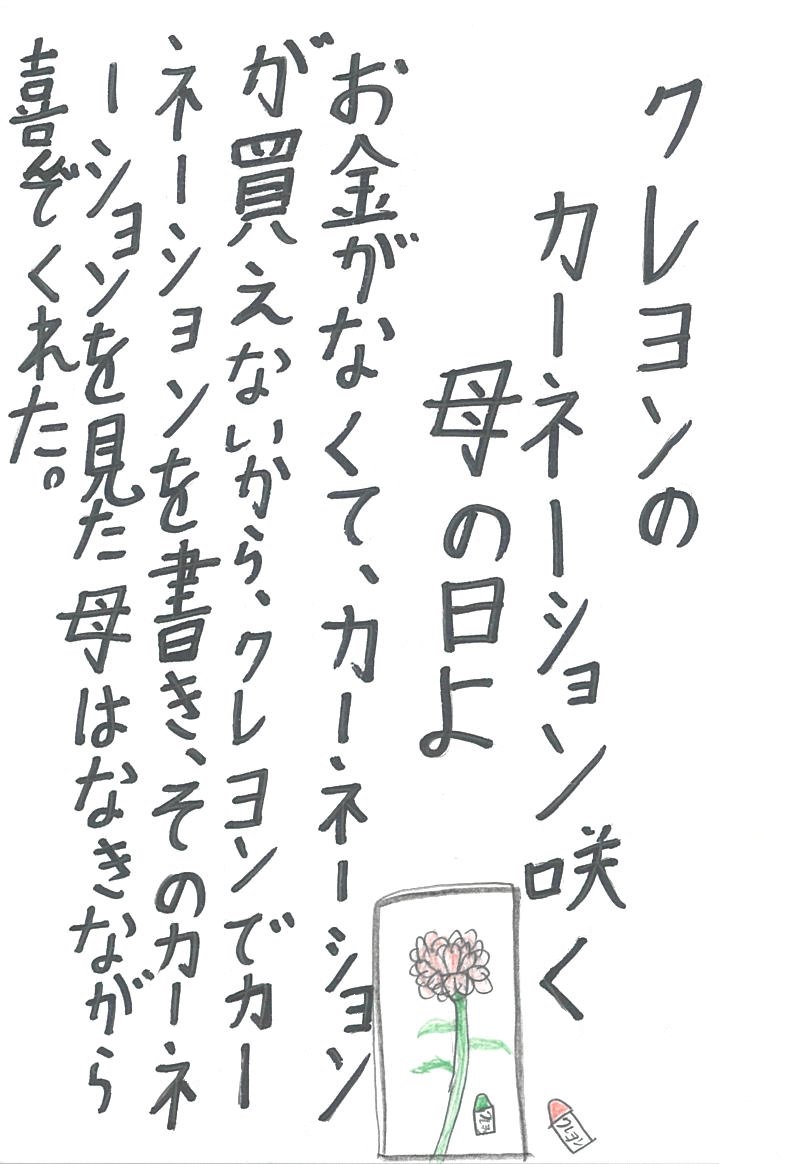 クレヨンの
カーネーション咲く
母の日よ
お金がなくて、カーネーション
が買えないから、クレヨンでカー
ネーションを書き、そのカーネ
ーションを見た母はなきながら
喜んでくれた。